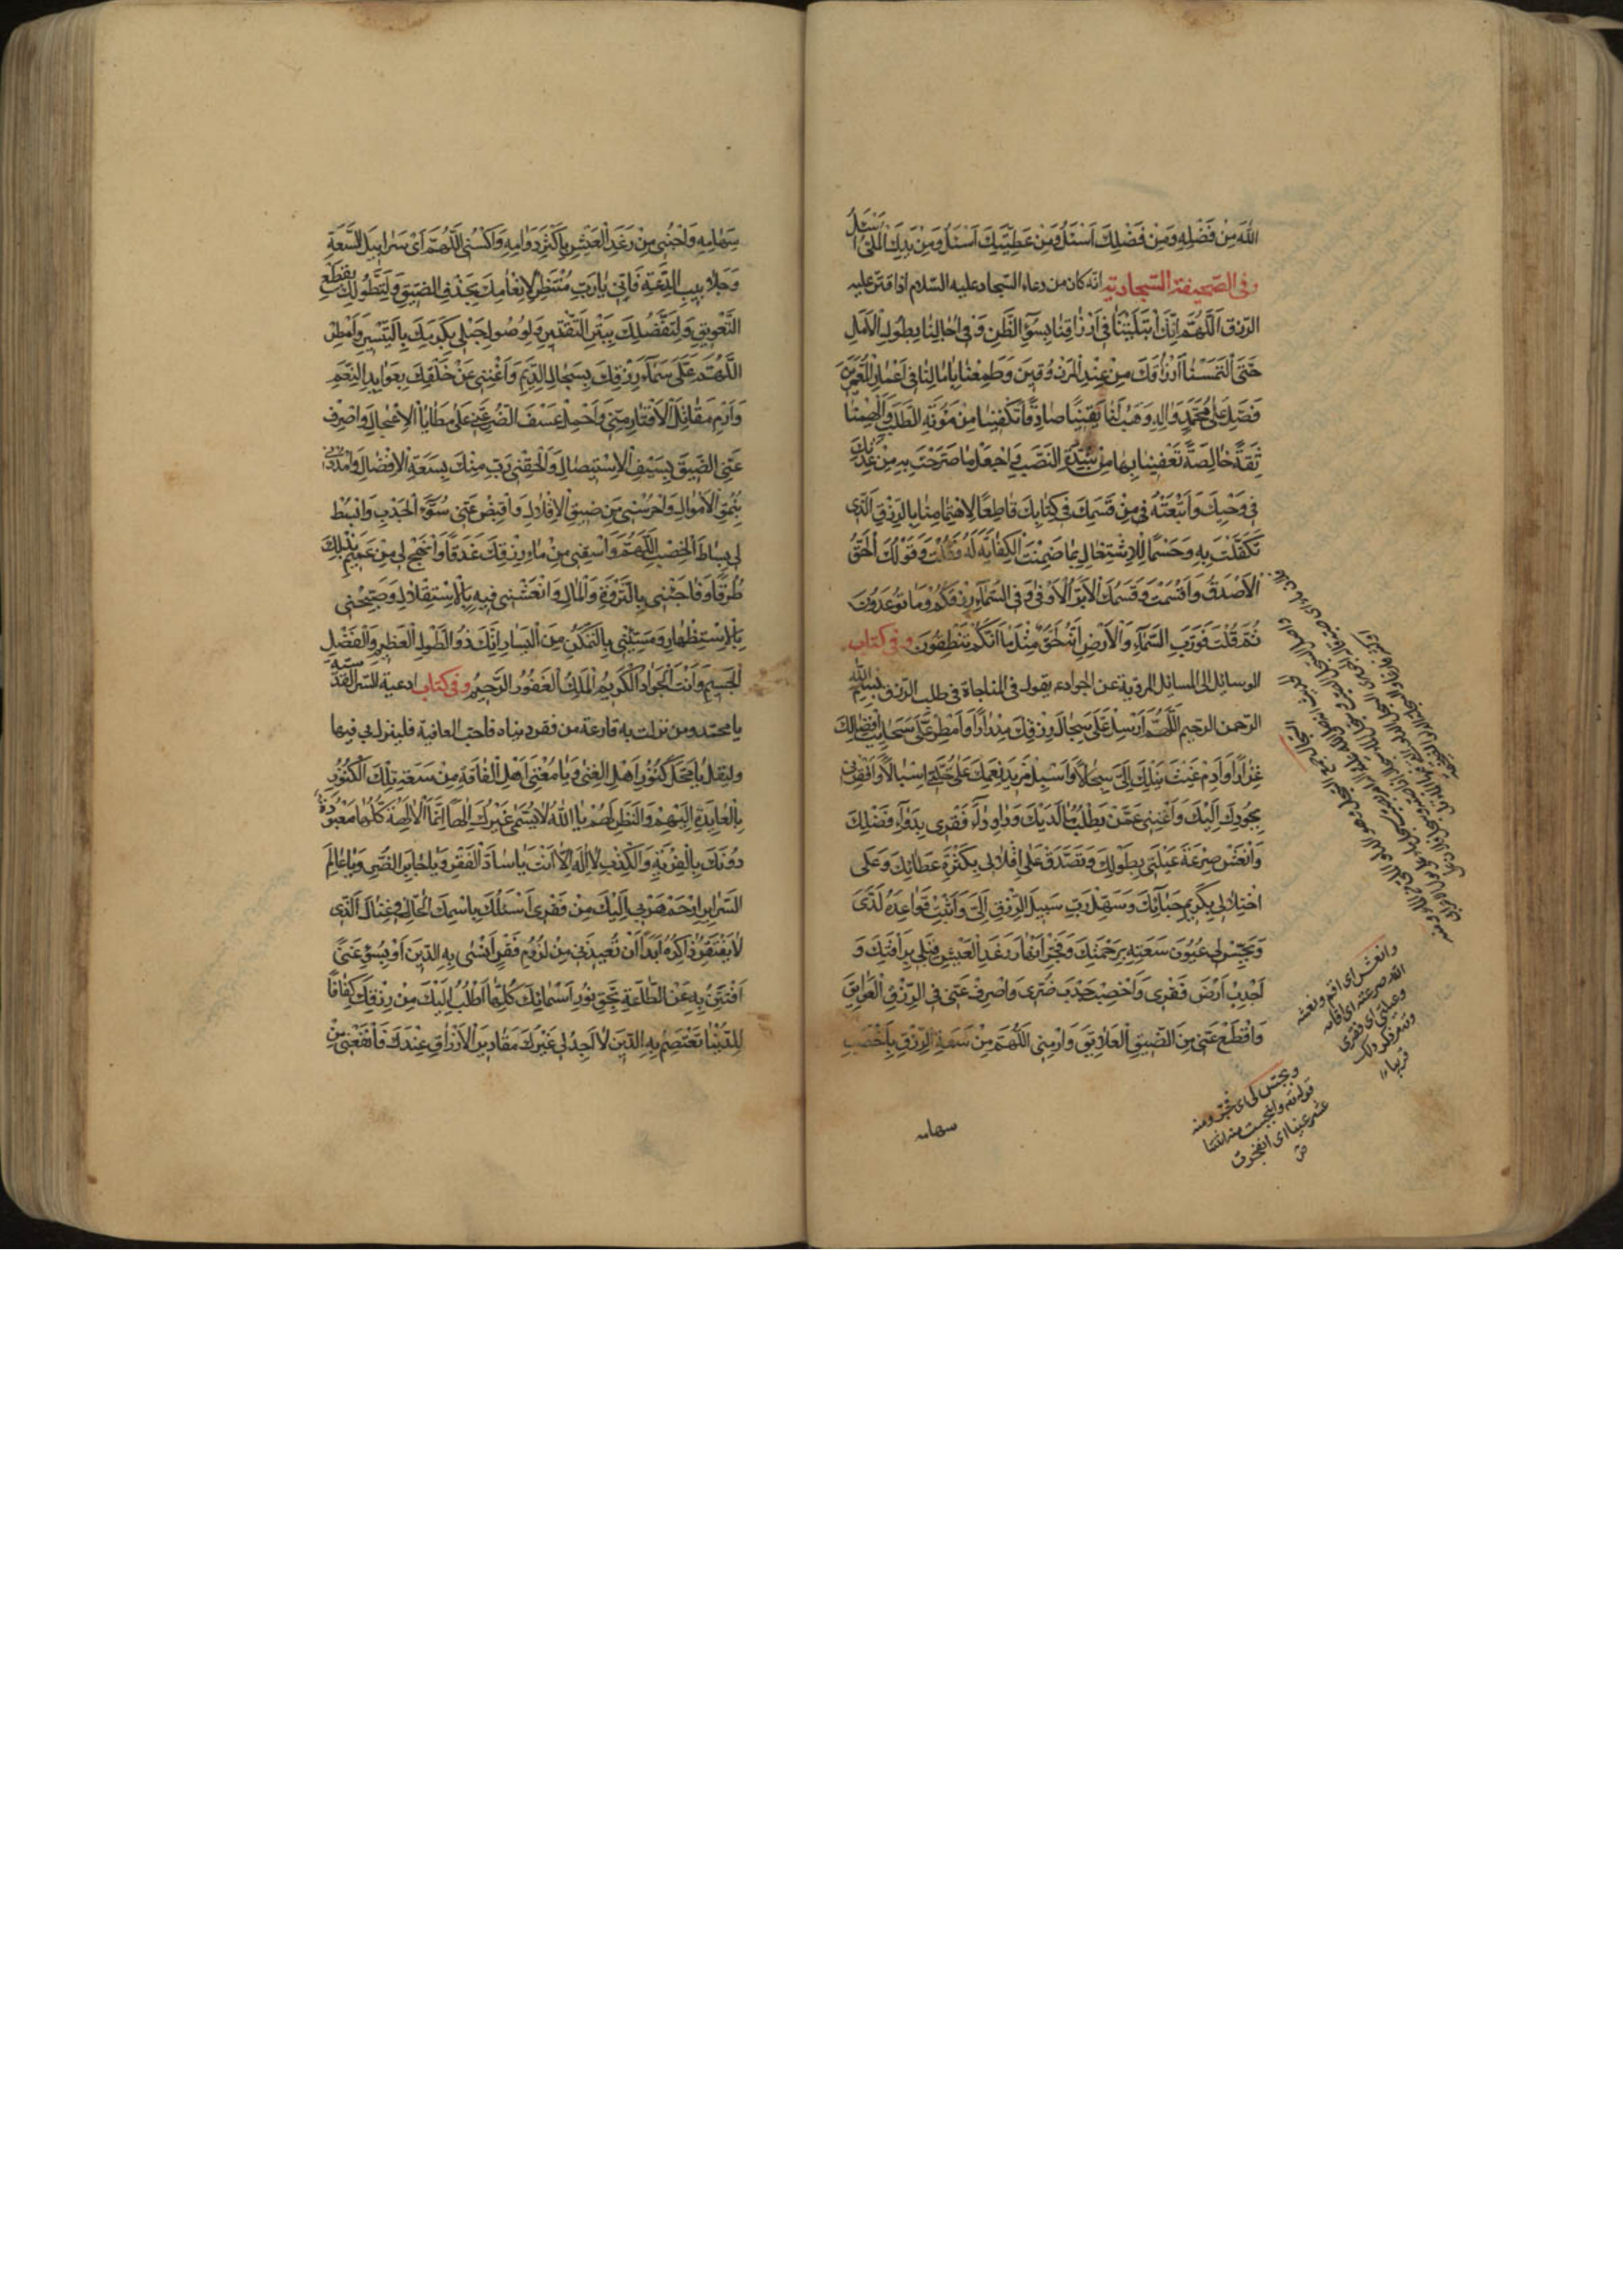 اللّٰهَ مِنْ فَضْلِهِ وَمِنْ فَضْلِكَ اَسْئَلُ وَمِنْ عَطِيَّتِكَ اَسْئَلُ وَمِنْ يَدِكَ الْمَلْئٰى اَسْئَلُ
وفى الصّحيفة السّجاديّة انّه كان من دعاء السّجاد عليه السّلام اذا قتّر عليه
الرّزق اَللّٰهُمَّ اِنَّكَ ابْتَلَيْتَنٰا فى اَرْزٰاقِنٰا بِسُوٓءِ الظَّنِّ وَفى اٰجٰالِنٰا بِطُولِ الْاَمَلِ
حَتَّى الْتَمَسْنٰا اَرْزٰاقَكَ مِنْ عِنْدِ الْمَرْزُوقينَ وَطَمِعْنٰا بِاٰمٰالِنٰا فى اَعْمٰارِ الْمُعَمَّرينَ
فَصَلِّ عَلٰى مُحَمَّدٍ وَاٰلِهِ وَهَبْ لَنٰا يَقينًا صٰادِقًا تَكْفينٰا مِنْ مَؤُنَةِ الطَّلَبِ وَاَلْهِمْنٰا
ثِقَةً خٰالِصَةً تُعْفينٰا بِهٰا مِنْ شِدَّةِ النَّصَبِ وَاجْعَلْ مٰا صَرَّحْتَ بِهِ مِنْ عِدَتِكَ
فى وَحْيِكَ وَاَتْبَعْتَهُ فى مِنْ قَسَمِكَ فى كِتٰابِكَ قٰاطِعًا لِاهْتِمٰامِنٰا بِالرِّزْقِ الَّذى
تَكَفَّلْتَ بِهِ وَحَسْمًا لِلْاِشْتِغٰالِ بِمٰا ضَمِنْتَ الْكِفٰايَةَ لَهُ وَقُلْتَ وَقَوْلُكَ الْحَقُّ
الْاَصْدَقُ وَاَقْسَمْتَ وَقَسَمُكَ الْاَبَرُّ الْاَوْفٰى وَفِى السَّمٰآءِ رِزْقُكُمْ وَمٰا تُوعَدُونَ
ثُمَّ قُلْتَ فَوَرَبِّ السَّمٰآءِ وَالْاَرْضِ اِنَّهُ لَحَقٌّ مِثْلَ مٰا اَنَّكُمْ تَنْطِقُونَ وفى كتاب
الوسائل الى المسائل المرويّة عن الجواد ع يقول فى المناجاة فى طلب الرّزق بسم اللّٰه
الرّحمن الرّحيم اَللّٰهُمَّ اَرْسِلْ عَلَىَّ سِجٰالَ رِزْقِكَ مِدْرٰارًا وَاَمْطِرْ عَلَىَّ سَحٰائِبَ اِفْضٰالِكَ
غِزٰارًا وَاَدِمْ غَيْثَ نَيْلِكَ اِلَىَّ سِجٰالًا وَاَسْبِلْ مَزيدَ نِعَمِكَ عَلٰى خَلَّتى اِسْبٰالًا وَاَفْقِرْنى
بِجُودِكَ اِلَيْكَ وَاَغْنِنى عَمَّنْ يَطْلُبُ مٰا لَدَيْكَ وَدٰاوِ دٰآءَ فَقْرى بِدَوٰآءِ فَضْلِكَ
وَانْعَشْ صِرْعَةَ عَيْلَتى بِطَوْلِكَ وَتَصَدَّقْ عَلٰى اِقْلٰالى بِكَثْرَةِ عَطٰائِكَ وَعَلٰى
اخْتِلٰالى بِكَريمِ حِبٰآئِكَ وَسَهِّلْ رَبِّ سَبيلَ الرِّزْقِ اِلَىَّ وَاَثْبِتْ قَوٰاعِدَهُ لَدَىَّ
وَبَجِّسْ لى عُيُونَ سَعَتِهِ بِرَحْمَتِكَ وَفَجِّرْ اَنْهٰارَ رَغَدِ الْعَيْشِ قِبَلى بِرَأْفَتِكَ وَ
اَجْدِبْ اَرْضَ فَقْرى وَاَخْصِبْ جَدْبَ ضُرّى وَاصْرِفْ عَنّى فِى الرِّزْقِ الْعَوٰائِقَ
وَاقْطَعْ عَنّى مِنَ الضّيقِ الْعَلٰائِقَ وَارْمِنى اَللّٰهُمَّ مِنْ سَعَةِ الرِّزْقِ بِاَخْصَبِ
وانعش اى اقم ونعشه
اللّٰه صرعته اى اقامه
وعيلتى اى فقرى
وقد مرّ ذكر ذلك
قريبا
وبجّس لى اى فجّر ومنه
قوله تع وانبجست منه اثنتا
عشر عينا اى انفجرت
ص
سهامه
سِهٰامِهِ وَاحْبُنى مِنْ رَغَدِ الْعَيْشِ بِاَكْثَرِ دَوٰامِهِ وَاكْسُنى اللّٰهُمَّ اَىْ سَرٰابيلَ السَّعَةِ
وَجَلٰابيبَ الدَّعَةِ فَاِنّى يٰا رَبِّ مُنْتَظِرٌ لِاِنْعٰامِكَ بِحَذْفِ الضّيقِ وَلِتَطَوُّلِكَ بِقَطْعِ
التَّعْويقِ وَلِتَفَضُّلِكَ بِبَتْرِ التَّقْتيرِ وَلِوُصُولِ حَبْلى بِكَرَمِكَ بِالتَّيْسيرِ وَاَمْطِرْ
اللّٰهُمَّ عَلَىَّ سَمٰآءَ رِزْقِكَ بِسِجٰالِ الدِّيَمِ وَاَغْنِنى عَنْ خَلْقِكَ بِعَوٰائِدِ النِّعَمِ
وَارْمِ مَقٰاتِلَ الْاَقْتٰارِ مِنّى وَاحْمِلْ عَسْفَ الضُّرِّ عَنّى عَلٰى مَطٰايَا الْاِعْجٰالِ وَاصْرِفْ
عَنِّى الضّيقَ بِسَيْفِ الْاِسْتيصٰالِ وَاَلْحِقْنى رَبِّ مِنْكَ بِسَعَةِ الْاِفْضٰالِ وَامْدُدْنى
بِنُمُوِّ الْاَمْوٰالِ وَاحْرُسْنى مِنْ ضيقِ الْاِقْلٰالِ وَاقْبِضْ عَنّى سُوٓءَ الْجَدْبِ وَابْسُطْ
لى بِسٰاطَ الْخِصْبِ اَللّٰهُمَّ وَاسْقِنى مِنْ مٰاءِ رِزْقِكَ غَدَقًا وَانْهَجْ لى مِنْ عَميمِ بَذْلِكَ
طُرُقًا وَفٰاجِئْنى بِالثَّرْوَةِ وَالْمٰالِ وَانْعَشْنى فيهِ بِالْاِسْتِقْلٰالِ وَصَبِّحْنى
بِالْاِسْتِظْهٰارِ وَمَسِّنى بِالتَّمَكُّنِ مِنَ الْيَسٰارِ اِنَّكَ ذُو الطَّوْلِ الْعَظيمِ وَالْفَضْلِ
الْجَسيمِ وَاَنْتَ الْجَوٰادُ الْكَريمُ الْمَلِكُ الْغَفُورُ الرَّحيمُ وفى كتاب ادعية السّر القدسيّة
يا محمّد ومن نزلت به قارعة من فقر دنياه فاحبّ العافية فلينزل بى فيها
وليقل يٰا مَحَلَّ كُنُوزِ اَهْلِ الْغِنٰى وَيٰا مُغْنِىَ اَهْلِ الْفٰاقَةِ مِنْ سَعَةِ تِلْكَ الْكُنُوزِ
بِالْعٰايِدَةِ اِلَيْهِمْ وَالنَّظَرِ لَهُمْ يٰا اَللّٰهُ لٰا يُسَمّٰى غَيْرُكَ اِلٰهًا اِنَّمَا الْاٰلِهَةُ كُلُّهٰا مَعْبُودَةٌ
دُونَكَ بِالْفِرْيَةِ وَالْكِذْبِ لٰا اِلٰهَ اِلّٰا اَنْتَ يٰا سٰادَّ الْفَقْرِ وَيٰا جٰابِرَ الضُّرِّ وَيٰا عٰالِمَ
السَّرٰايِرِ ارْحَمْ هَرَبى اِلَيْكَ مِنْ فَقْرى اَسْئَلُكَ بِاسْمِكَ الْحٰالِّ فى غِنٰاكَ الَّذى
لٰا يَفْتَقِرُ ذٰاكِرُهُ اَبَدًا اَنْ تُعيذَنى مِنْ لُزُومِ فَقْرٍ اَنْسٰى بِهِ الدّينَ اَوْ بِسُوٓءِ غِنًى
اَفْتَتِنُ بِهِ عَنِ الطّٰاعَةِ بِحَقِّ نُورِ اَسْمٰائِكَ كُلِّهٰا اَطْلُبُ اِلَيْكَ مِنْ رِزْقِكَ كَفٰافًا
لِلدُّنْيٰا تَعْصِمُ بِهِ الدّينَ لٰا اَجِدُ لى غَيْرَكَ مَقٰاديرُ الْاَرْزٰاقِ عِنْدَكَ فَانْفَعْنى مِنْ